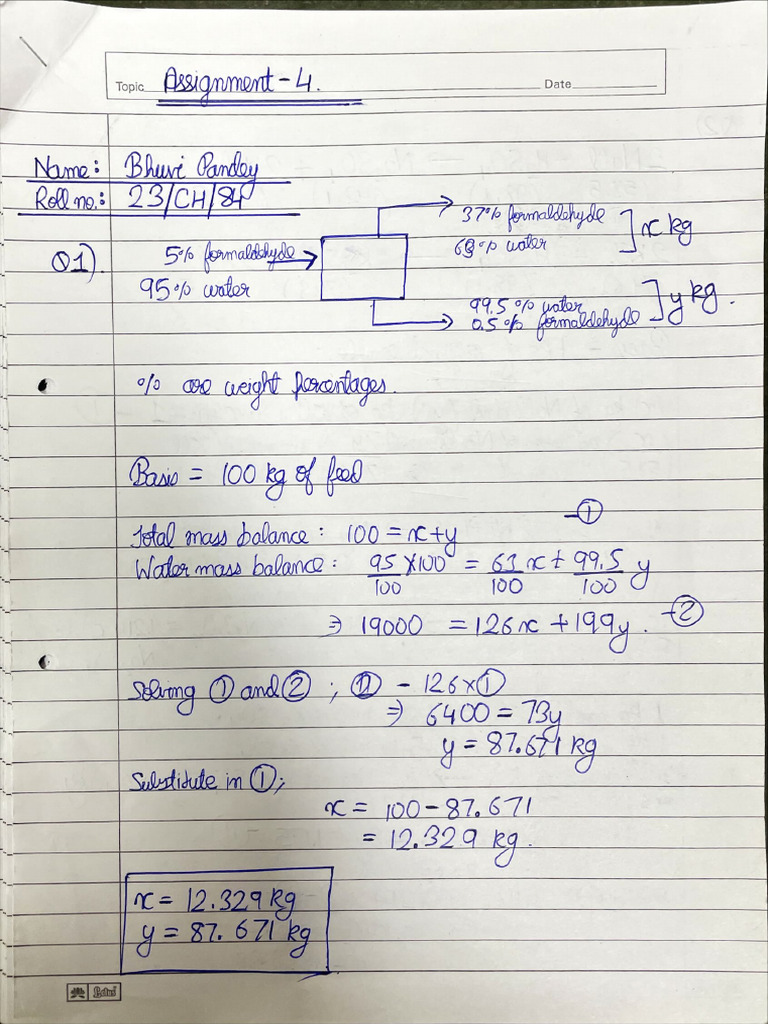 Topic Assignment - 4. Date
Name: Bhuvi Pandey
Roll no.: 23/CH/84
37% formaldehyde
63% water ] x kg
Q1). 5% formaldehyde
95% water
99.5% water
0.5% formaldehyde ] y kg.
% are weight percentages.
Basis = 100 kg of feed
Total mass balance: 100 = x+y —①
Water mass balance: 95/100 × 100 = 63/100 x + 99.5/100 y
⇒ 19000 = 126x + 199y. —②
Solving ① and ② ; ② - 126×①
⇒ 6400 = 73y
y = 87.671 kg
Substitute in ①;
x = 100 - 87.671
= 12.329 kg.
x = 12.329 kg
y = 87.671 kg
Lotus